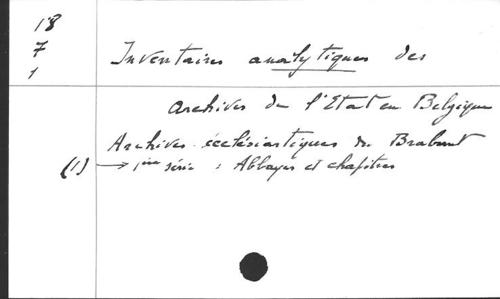 18
7
1
Inventaires analytiques des
Archives de l'Etat en Belgique
Archives ecclésiastiques du Brabant
(1) → 1ière série : Abbayes et chapitres